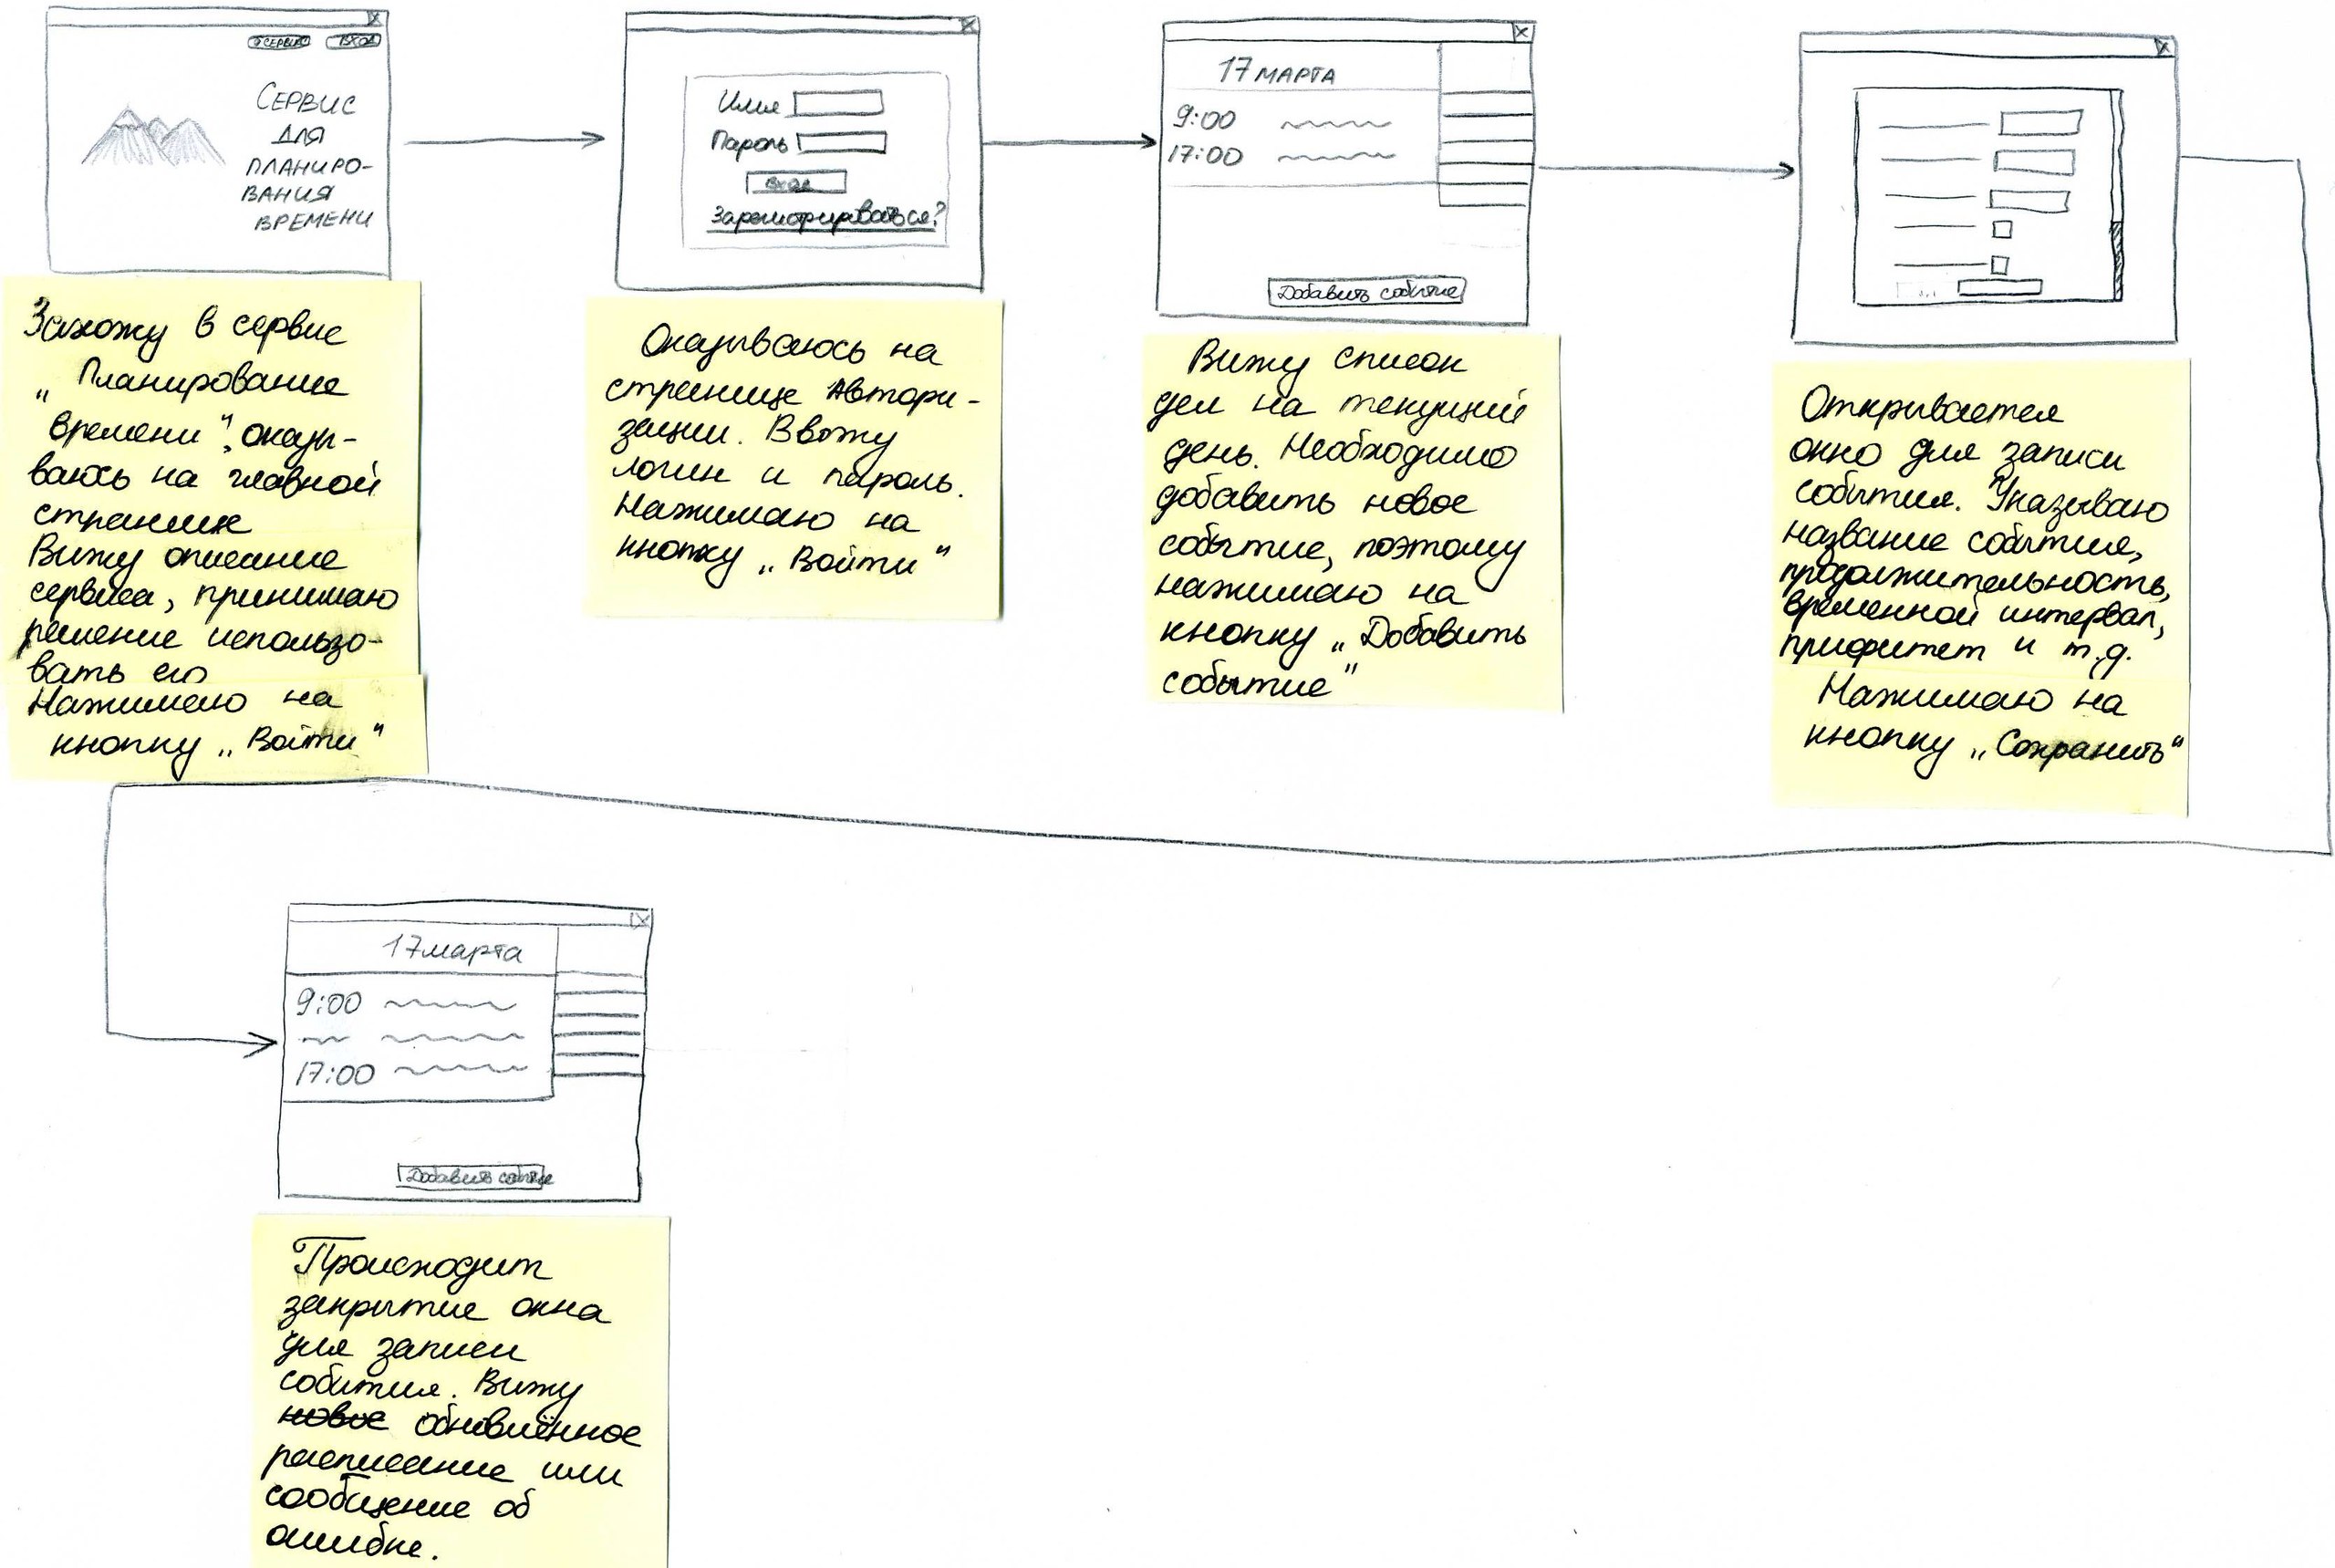 О СЕРВИСЕ
ВХОД
СЕРВИС
ДЛЯ
ПЛАНИРО-
ВАНИЯ
ВРЕМЕНИ
Захожу в сервис
„Планирование
времени“, оказы-
ваюсь на главной
странице
Вижу описание
сервиса, принимаю
решение использо-
вать его
Нажимаю на
кнопку „Войти“
Имя
Пароль
Вход
Зарегистрироваться?
Оказываюсь на
странице Автори-
зации. Ввожу
логин и пароль.
Нажимаю на
кнопку „Войти“
17 МАРТА
9:00
17:00
Добавить событие
Вижу список
дел на текущий
день. Необходимо
добавить новое
событие, поэтому
нажимаю на
кнопку „Добавить
событие“
Открывается
окно для записи
события. Указываю
название события,
продолжительность,
временной интервал,
приоритет и т.д.
Нажимаю на
кнопку „Сохранить“
17 марта
9:00
17:00
Добавить событие
Происходит
закрытие окна
для записи
события. Вижу
новое обновлённое
расписание или
сообщение об
ошибке.